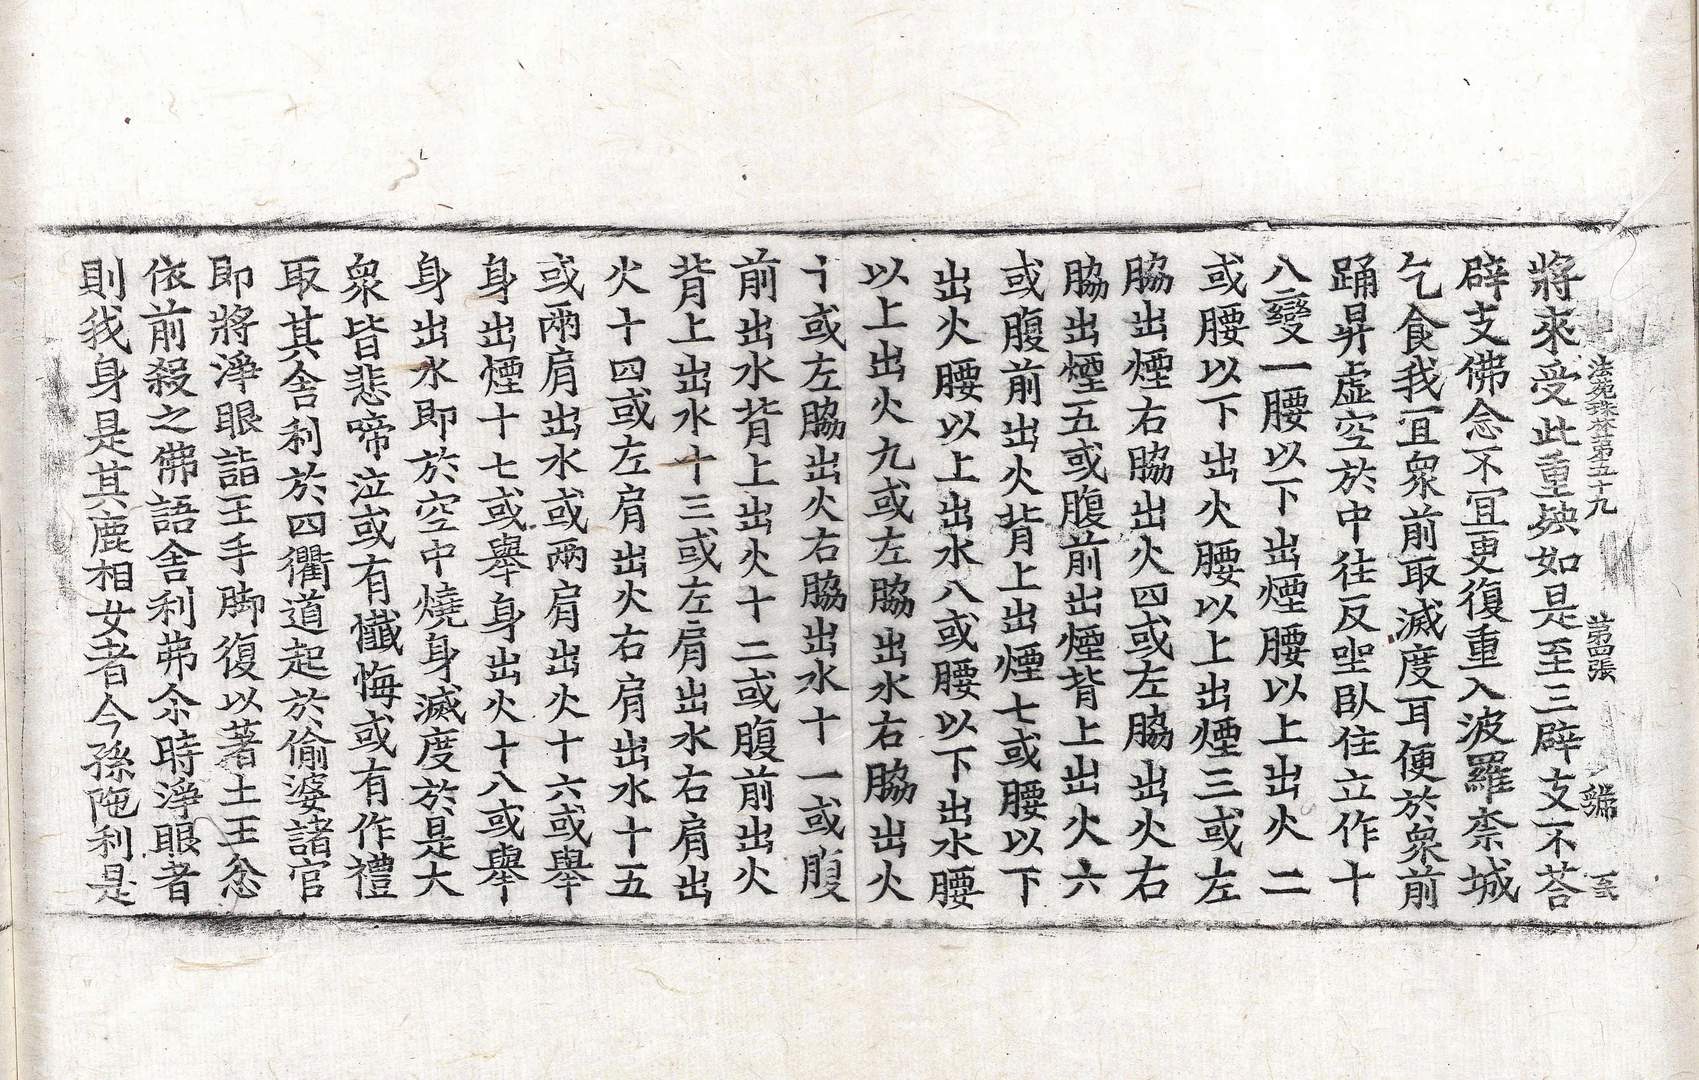 法苑珠林第五十九 第四張 號
將來受此重殃如是至三辟支不荅
辟支佛念不宜更復重入波羅柰城
乞食我宜衆前取滅度耳便於衆前
踊昇虚空於中往反坐臥住立作十
八變一腰以下出煙腰以上出火二
或腰以下出火腰以上出煙三或左
脇出煙右脇出火四或左脇出火右
脇出煙五或腹前出煙背上出火六
或腹前出火背上出煙七或腰以下
出火腰以上出水八或腰以下出水腰
以上出火九或左脇出水右脇出火
十或左脇出火右脇出水十一或腹
前出水背上出火十二或腹前出火
背上出水十三或左肩出水右肩出
火十四或左肩出火右肩出水十五
或兩肩出水或兩肩出火十六或舉
身出煙十七或舉身出火十八或舉
身出水即於空中燒身滅度於是大
衆皆悲啼泣或有懺悔或有作禮
取其舍利於四衢道起於偷婆諸官
即將淨眼詣王手脚復以著土王忿
依前殺之佛語舍利弗尒時淨眼者
則我身是其鹿相女者今孫陁利是